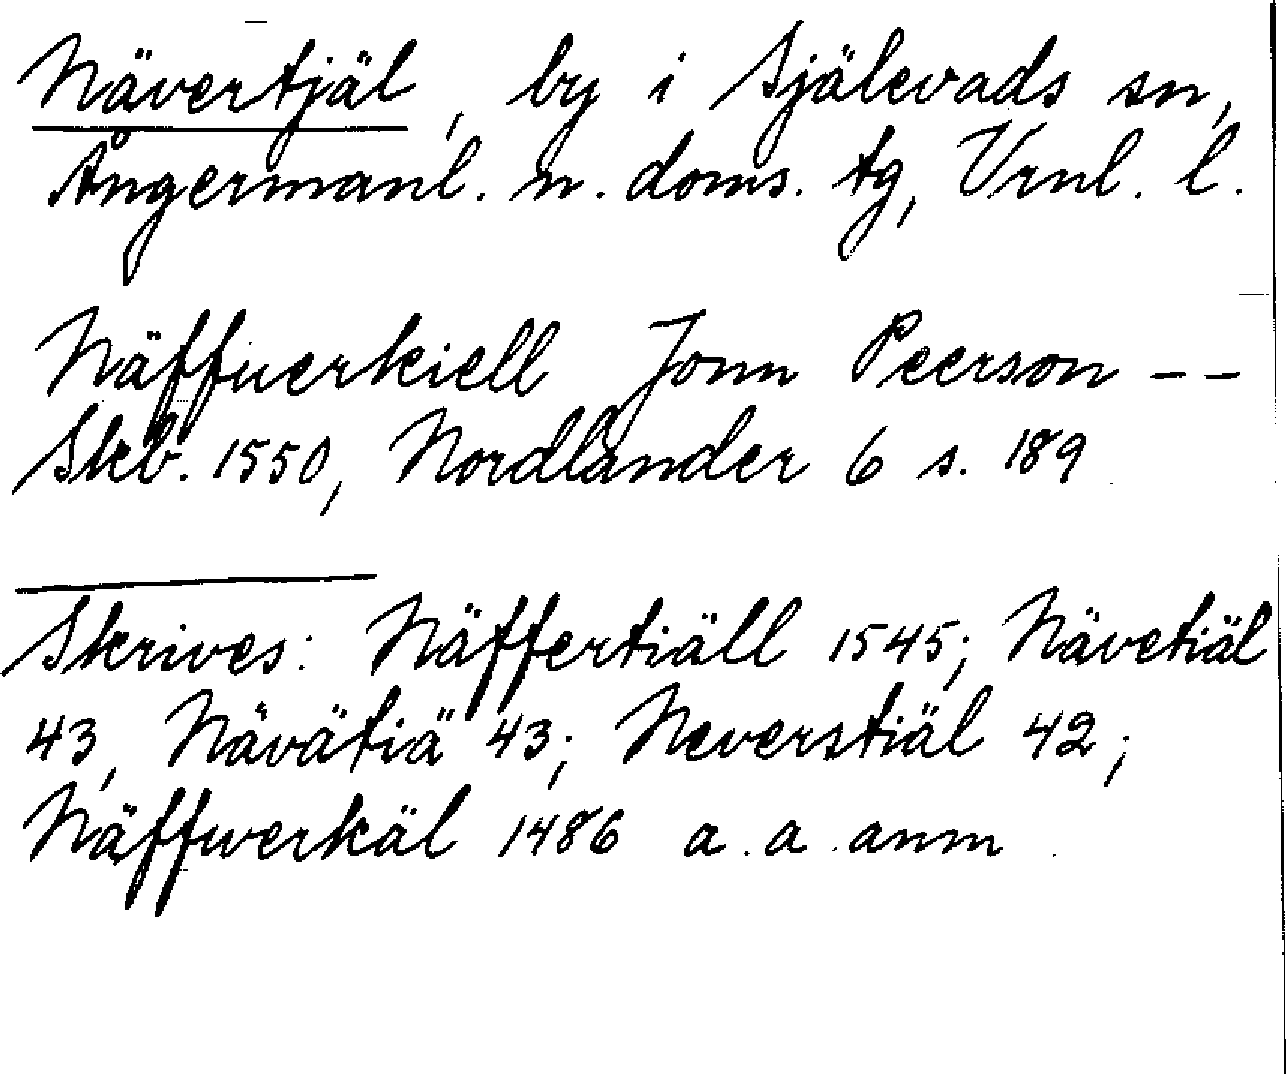 Nävertjäl, by i Själevads sn,
Ångermanl. n. doms. tg, Vrnl. l.
Näffuerkiell Jonn Peerson --
Skb. 1550, Nordlander 6 s. 189
Skrives: Näffertiäll 1545; Nävetiäl
43, Nävätiä 43; Neverstiäl 42;
Näffwerkäl 1486 a. a. anm